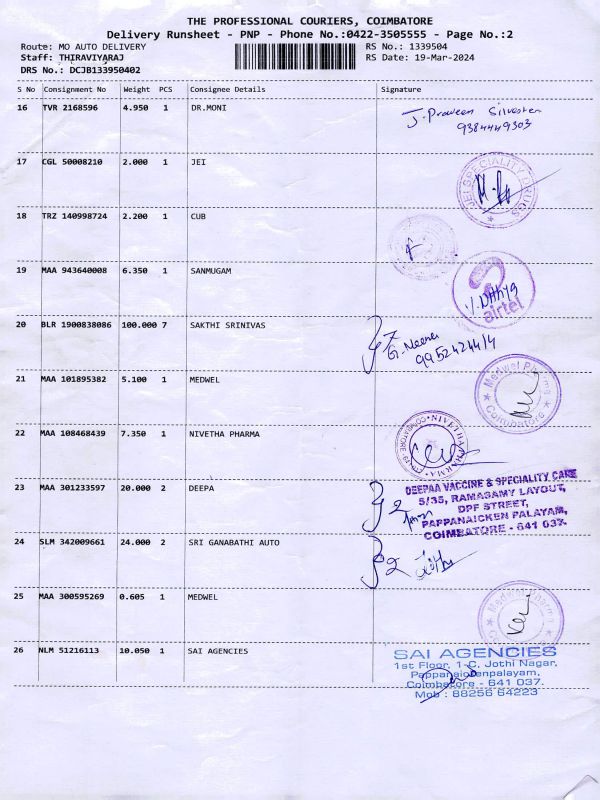 THE PROFESSIONAL COURIERS, COIMBATORE
Delivery Runsheet - PNP - Phone No.:0422-3505555 - Page No.:2
Route: MO AUTO DELIVERY RS No.: 1339504
Staff: THIRAVIYARAJ RS Date: 19-Mar-2024
DRS No.: DCJB133950402
S No Consignment No Weight PCS Consignee Details Signature
16 TVR 2168596 4.950 1 DR.MONI
J. Praveen Silvester
9384449303
17 CGL 50008210 2.000 1 JEI
JEI SPECIALITY DRUGS
18 TRZ 140998724 2.200 1 CUB
19 MAA 943640008 6.350 1 SANMUGAM
airtel
20 BLR 1900838086 100.000 7 SAKTHI SRINIVAS
7
G. Neena
21 MAA 101895382 5.100 1 MEDWEL
Medwel Pharma
Coimbatore
22 MAA 108468439 7.350 1 NIVETHA PHARMA
NIVETHA PHARMA
COIMBATORE
23 MAA 301233597 20.000 2 DEEPA
2
DEEPAA VACCINE & SPECIALITY CARE
5/35, RAMASAMY LAYOUT,
DPF STREET,
PAPPANAICKEN PALAYAM,
COIMBATORE - 641 037.
24 SLM 342009661 24.000 2 SRI GANABATHI AUTO
2
25 MAA 300595269 0.605 1 MEDWEL
Medwel Pharma
26 NLM 51216113 10.050 1 SAI AGENCIES
SAI AGENCIES
1st Floor, 1-C, Jothi Nagar,
Pappanaickenpalayam,
Coimbatore - 641 037.
Mob : 88256 64223